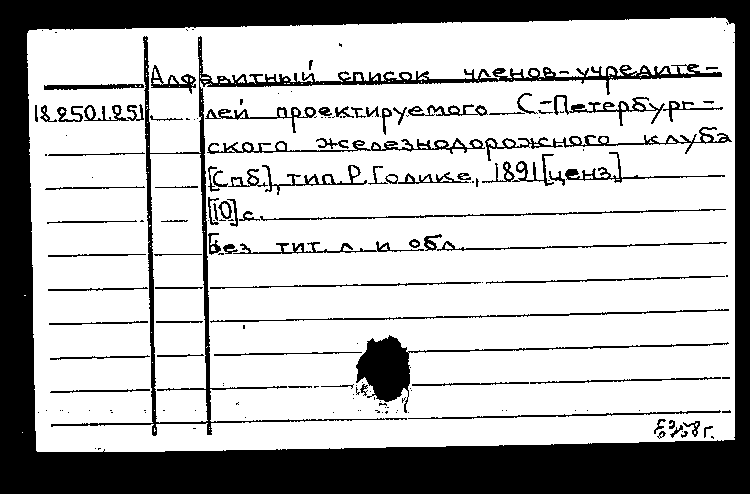 Алфавитный список членов-учредите-
18.250.1.251 лей проектируемого С-Петербург-
ского железнодорожного клуба
[Спб.], тип. Р. Голике, 1891 [ценз.].
[10] с.
Без тит. л. и обл.